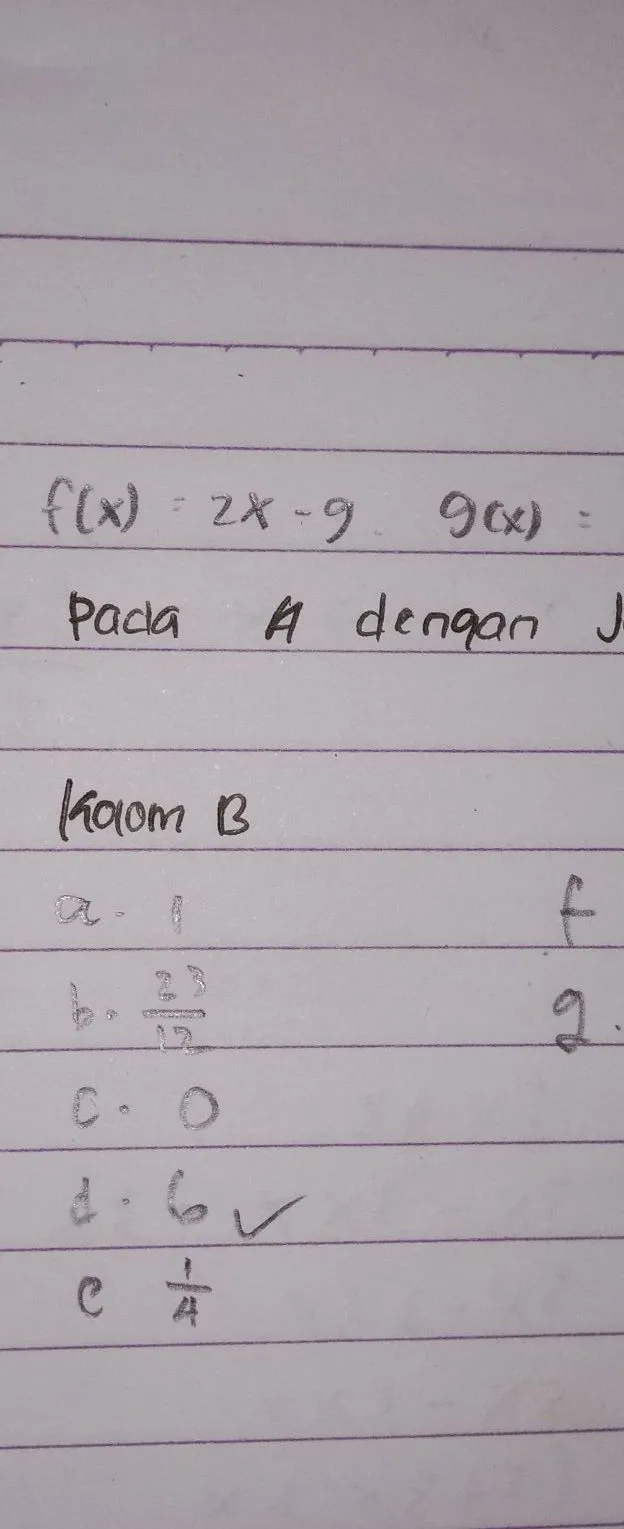 f(x) = 2x - 9 g(x) =
Pada A dengan J
Kolom B
a. 1 f
b. 23/12 g.
c. 0
d. 6 ✓
e 1/4